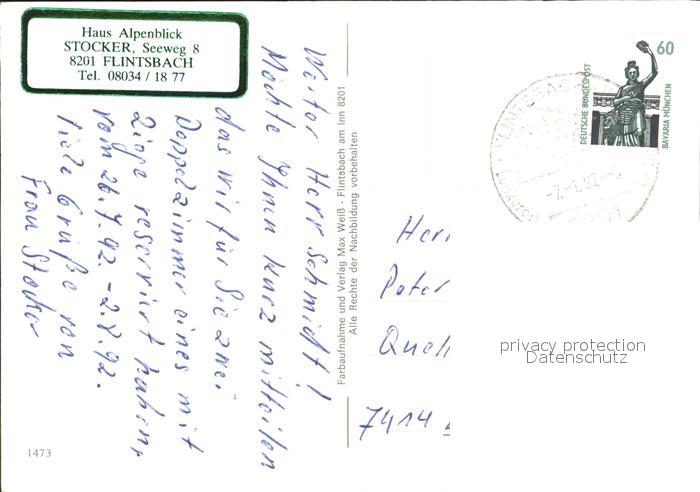 Haus Alpenblick
STOCKER, Seeweg 8
8201 FLINTSBACH
Tel. 08034 / 18 77
Herr Schmidt!
Möchte Ihnen kurz mitteilen
das wir für Sie zwei
Doppelzimmer eines mit
reserviert haben,
vom 26.7.92.-2.8.92.
Viele Grüße von
Frau Stocker
1473
Farbaufnahme und Verlag Max Weiß - Flintsbach am Inn 8201
Alle Rechte der Nachbildung vorbehalten
60
DEUTSCHE BUNDESPOST
BAVARIA MÜNCHEN
FLINTSBACH
Herr
Peter
Quell
7414
privacy protection
Datenschutz